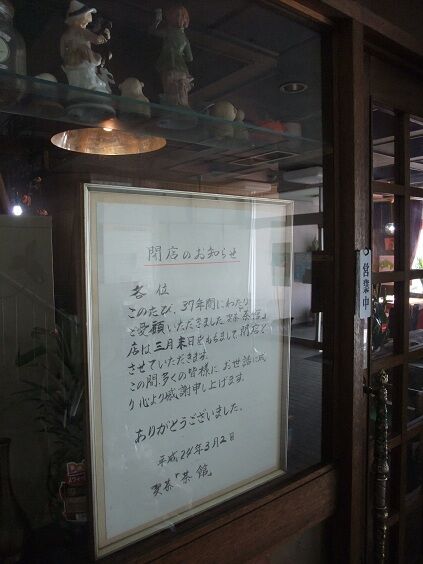 閉店のお知らせ
各位
このたび、37年間にわたり
ご愛顧いただきました 茶館」
店は三月末日をもちまして閉店と
させていただきます。
この間、多くの皆様に お世話に成
り心より感謝申し上げます。
ありがとうございました。
平成24年3月2日
喫茶「茶館」
営業中